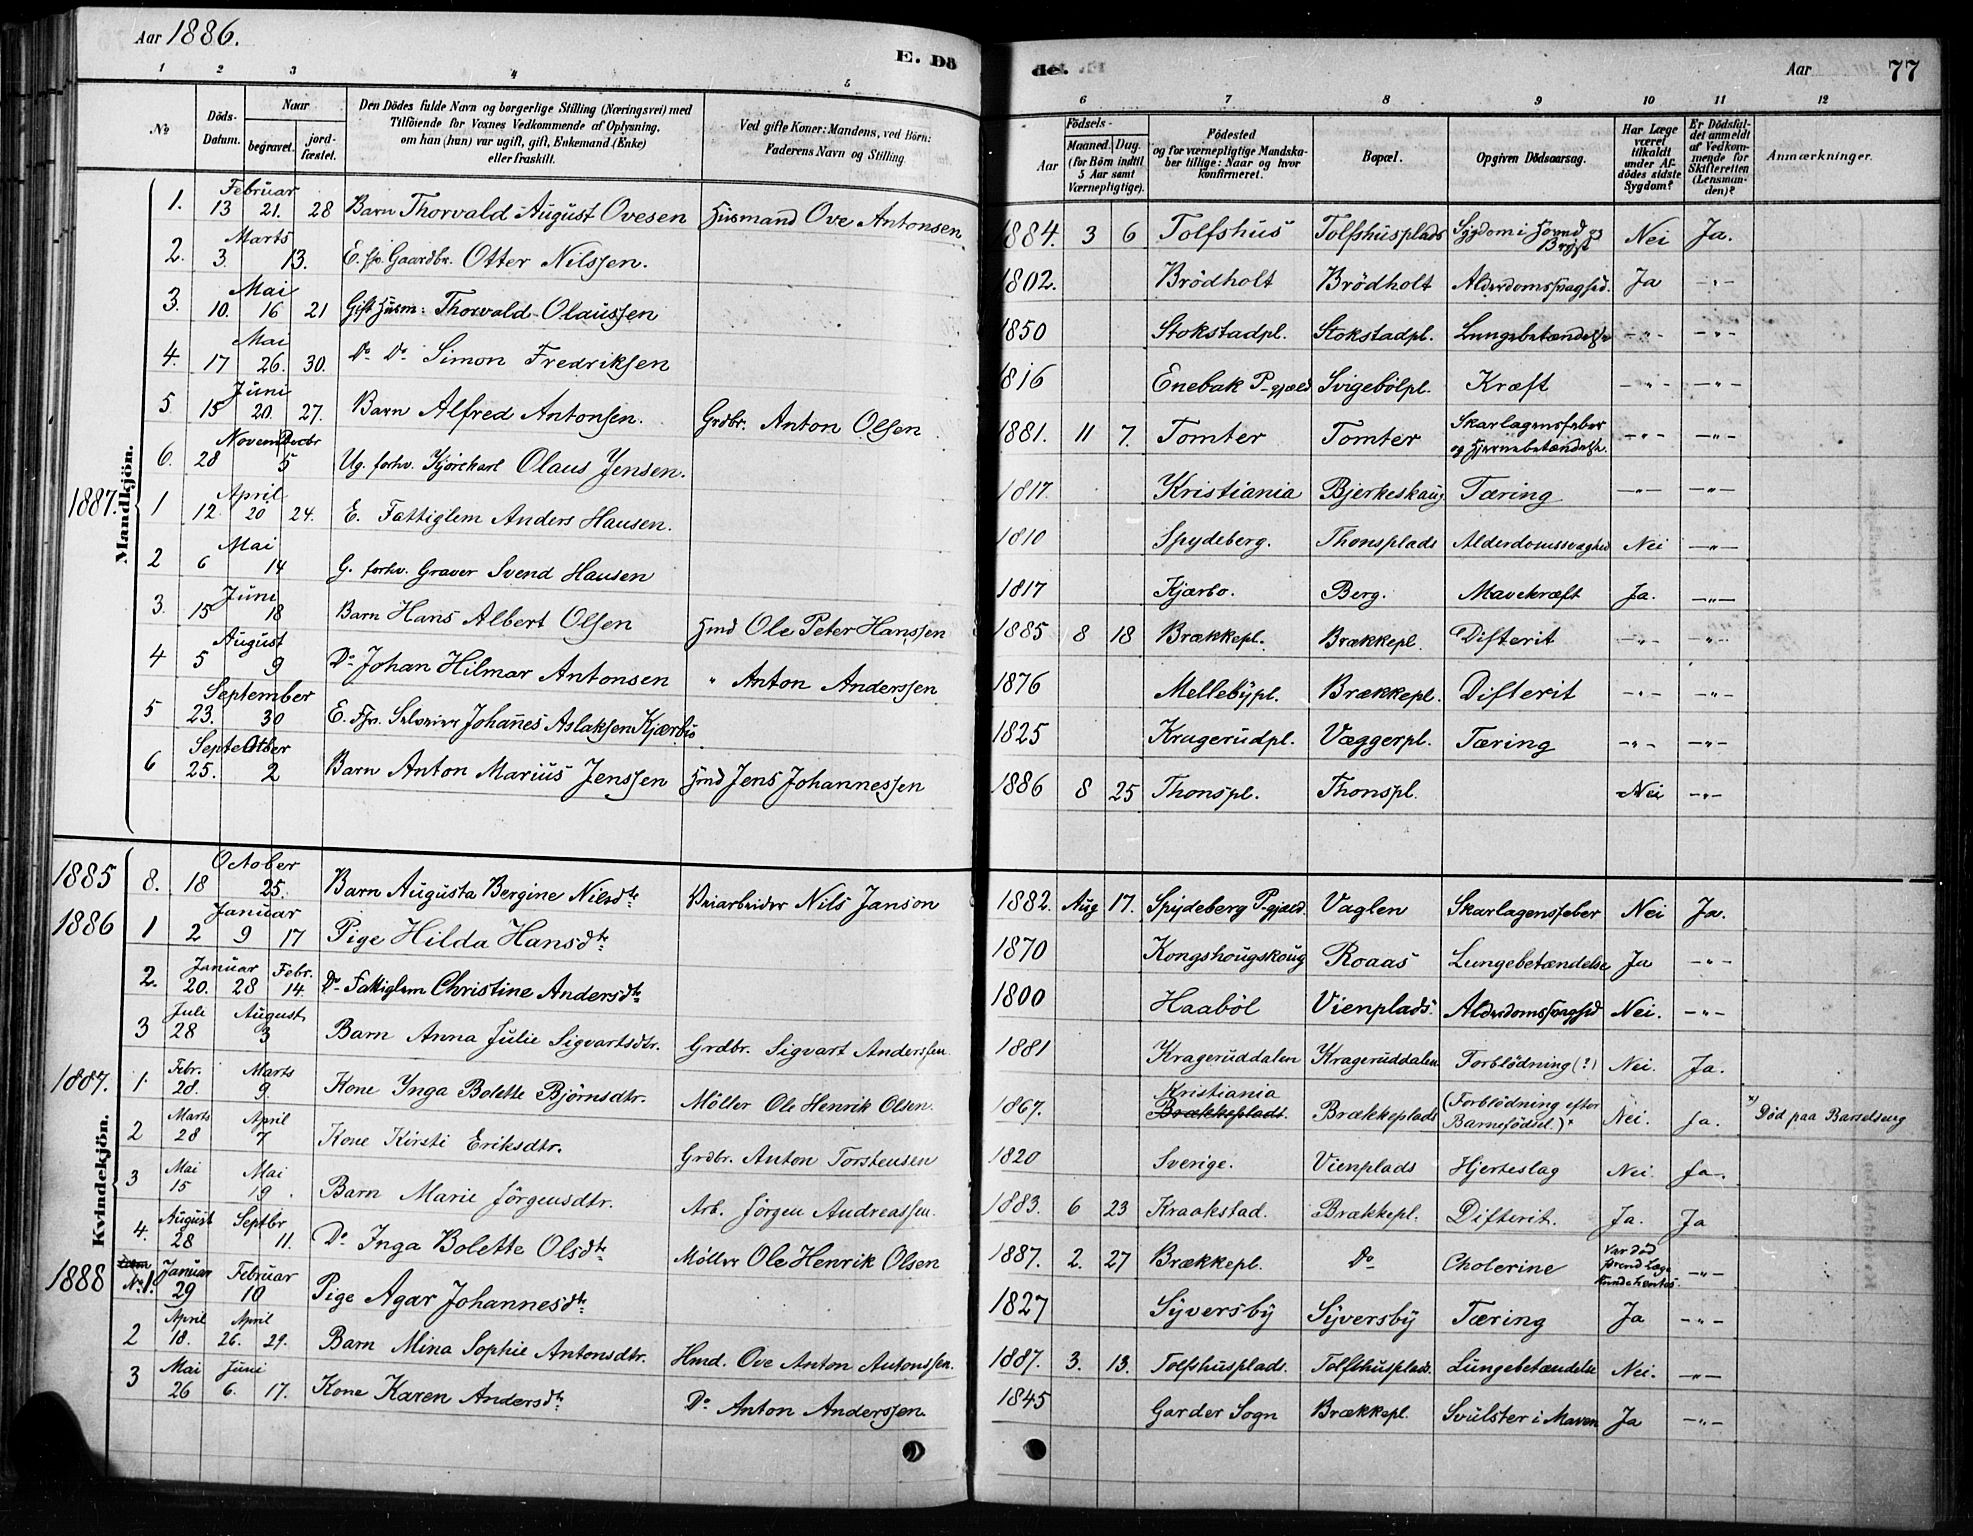 Aar 1886.
E. Dö
de.
Aar
77
1 2 3 4 5
6 7 8 9 10 11 12
No
Döds-Datum.
Naar
begravet.
jord-fæstet.
Den Dödes fulde Navn og borgerlige Stilling (Næringsvei) med
Tilföiende for Voxnes Vedkommende af Oplysning,
om han (hun) var ugift, gift, Enkemand (Enke)
eller fraskilt.
Ved gifte Koner: Mandens, ved Börn:
Faderens Navn og Stilling.
Aar
Födsels-
Maaned. Dag.
(for Börn indtil
5 Aar samt
Værnepligtige).
Födested
og for værnepligtige Mandska-
ber tillige: Naar og hvor
konfirmeret.
Bopæl.
Opgiven Dödsaarsag.
Har Læge
været
tilkaldt
under Af-
dödes sidste
Sygdom?
Er Dödsfal-
det anmeldt
af Vedkom-
mende for
Skifteretten
(Lensman-
den)?
Anmærkninger.
Mandkjön.
1. Februar 13 21. 28 Barn Thorvald August Ovesen Husmand Ove Antonsen 1884. 3 6 Tolfshus Tolfshusplads Sygdom i Hoved og Bryst Nei Ja.
2. Marts 3. 13. E. fhv. Gaardbr. Otter Nilssen. 1802. Brödholt Brödholt Alderdomssvaghed. Ja -"-
3. Mai 10. 16 21 Gift Husm: Thorvald Olaussen 1850 Stokstadpl. Stokstadpl. Lungebetændelse -"- -"-
4. Mai 17 26. 30. Do Do Simon Fredriksen 1816 Enebak P-gjæld Svigebölpl. Kræft -"- -"-
5 Juni 15 20. 27. Barn Alfred Antonsen. Grdbr. Anton Olsen 1881. 11 7. Tomter Tomter Skarlagensfeber og Hjernebetændelse. -"- -"-
6. November Decbr 28 5 Ug. forhv. Kjörekarl Olaus Jensen. 1817. Kristiania Bjerkeskaug Tæring -"- -"-
1887. 1 April 12. 20 24. E. Fattiglem Anders Hansen. 1810 Spydeberg. Thonsplads Alderdomssvaghed Nei -"-
2 Mai 6 14 G. forhv. Graver Svend Hansen 1817 Kjærbo. Berg. Mavekræft Ja. -"-
3. Juni 15 18 Barn Hans Albert Olsen Hmd Ole Peter Hanssen 1885 8 18 Brækkepl. Brækkepl. Difterit -"- -"-
4 August 5 9 Do Johan Hilmar Antonsen " Anton Anderssen 1876 Mellebypl. Brækkepl. Difterit -"- -"-
5 September 23. 30 E. Fhv. Selveier Johannes Aslaksen Kjærbo 1825 Kragerudpl. Væggerpl. Tæring -"- -"-
6 Septe Otber 25. 2 Barn Anton Marius Jenssen Hmd Jens Johannessen 1886 8 25 Thonspl. Thonspl. Nei -"-
Kvindekjön.
1885 8. October 18 25. Barn Augusta Bergine Nilsdtr Veiarbeider Nils Janson 1882. Aug 17. Spydeberg P-gjæld. Vaglen Skarlagensfeber Nei Ja.
1886 1 Januar 2 9 17 Pige Hilda Hansdtr 1870 Kongshougskoug Roaas Lungebetændelse Ja -"-
2. Januar Febr. 20. 28 14. Do Fattiglem Christine Andersdtr 1800 Haaböl Vienplads. Alderdomssvaghed Nei. -"-
3 Juli August 28 3 Barn Anna Julie Sigvartsdtr. Grdbr. Sigvart Anderssen. 1881 Krageruddalen Krageruddalen Forblödning (?) Nei. Ja.
1887. 1. Febr. Marts 28. 9. Kone Ynga Bolette Björnsdtr. Möller Ole Henrik Olsen. 1867. Kristiania Brækkeplads. Brækkeplads (Forblödning efter Barnefödsel)x Nei. Ja. x) Död paa Barselseng
2 Marts April 28 7 Kone Kirsti Eriksdtr. Grdbr. Anton Torstensen 1820 Sverige. Vienplads Hjerteslag Nei. Ja.
3 Mai Mai 15 19. Barn Marie Jörgensdtr. Arb. Jörgen Andreassen. 1883. 6 23 Kraakstad. Brækkepl. Difterit. Ja. Ja
4. August Septbr 28 11. Do Inga Bolette Olsdtr Möller Ole Henrik Olsen 1887. 2. 27 Brækkepl. Do Cholerine Var död förend Læge kunde hentes. -"-
1888 No 1. Januar Februar 29 10 Pige Agar Johannesdtr 1827 Syversby Syversby Tæring Ja -"-
2 April April 18. 26. 29. Barn Mina Sophie Antonsdtr. Hmd. Ove Anton Antonssen. 1887. 3. 13. Tolfshusplads. Tolfshusplads. Lungebetændelse Nei. -"-
3 Mai Juni 26 6. 17. Kone Karen Andersdtr Do Anton Anderssen. 1845 Garder Sogn Brækkepl. Svulster i Maven Ja -"-